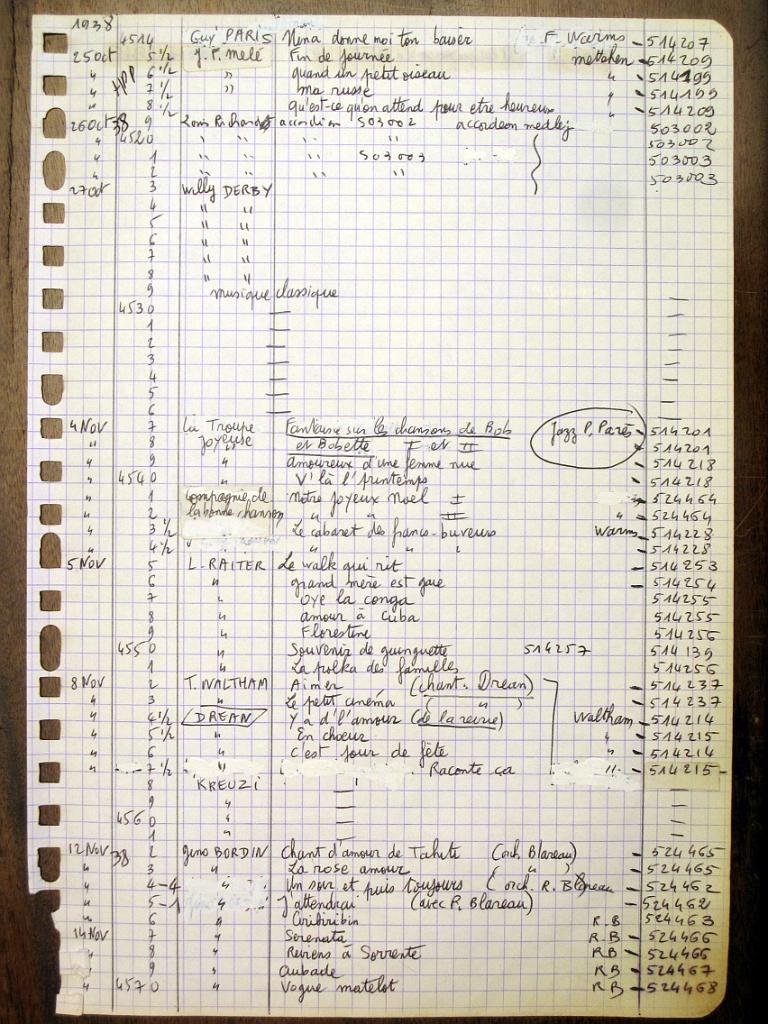 1938
4514 Guy PARIS Nina donne moi ton baiser F. Warms - 514207
25 Oct 5 1/2 J.P. Melé Fin de journée mettehen - 514209
" HPP 6 1/2 " quand un petit oiseau " - 514199
" 7 1/2 " ma russe " - 514199
" 8 1/2 qu'est ce qu'on attend pour etre heureux " - 514209
26 Oct 38 9 Louis Richardet accordion 503002 accordeon medley 503002
" 4520 " " " " 503002
" 1 " " " 503003 503003
" 2 " " " " 503003
27 Oct 3 Willy DERBY
4 " "
5 " "
6 " "
7 " "
8 " "
9 musique classique
4530 — —
1 — —
2 — —
3 — —
4 — —
5 — —
6 — —
4 Nov 7 La Troupe Fantaisie sur les chansons de Bob Jazz P. Parès - 514201
" 8 Joyeuse et Bobette I et II - 514201
" 9 " amoureux d'une femme nue - 514218
" 4540 " V'là l'printemps - 514218
" 1 Compagnie de notre joyeux Noel I - 524464
" 2 la bonne chanson " " II " - 524464
" 3 1/2 Le cabaret des francs-buveurs Warms - 514228
" 4 1/2 " " " - 514228
5 Nov 5 L. RAITER Le walk qui rit - 514253
6 " grand mère est gaie - 514254
7 " Oye la conga 514255
8 " amour à Cuba 514255
9 " Florestine 514256
4550 " Souvenir de guinguette 514257 514139
1 " La polka des familles 514256
8 Nov 2 T. WALTHAM Aimer (chant. Drean) - 514237
" 3 " Le petit cinéma ( " " ) - 514237
" 4 1/2 DREAN Y a d'l'amour (de la revue) Waltham - 514214
" 5 1/2 " En choeur " - 514215
" 6 " c'est jour de fête " - 514214
" 7 1/2 Raconte ça " - 514215 -
8 KREUZI — —
9 " — —
4560 " — —
1 " — —
12 Nov 38 2 Gino BORDIN Chant d'amour de Tahiti (orch Blareau) - 524465
" 3 " La rose amour ( " " ) - 524465
" 4-4 " Un soir et puis toujours (orch. R. Blareau - 524462
" 5-1 " J'attendrai (avec R. Blareau) - 524462
" 6 " Ciribiribin R.B - 524463
14 Nov 7 " Serenata R.B - 524466
" 8 " Reviens à Sorrente RB - 524466
" 9 " Aubade RB - 524467
" 4570 " Vogue matelot RB - 524468